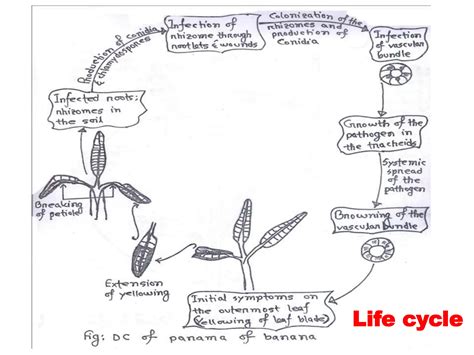 Production of Conidia
& chlamydospores
Infection of
rhizome through
rootlets & wounds
Colonization of the
rhizomes and
production of
Conidia
Infection
of vascular
bundle
Growth of the
pathogen in
the tracheids
Systemic
spread
of the
pathogen
Browning of the
vascular bundle
Initial symptoms on
the outermost leaf
(Yellowing of leaf blade)
Extension
of yellowing
Breaking
of petiole
Infected roots;
rhizomes in
the soil
Fig: DC of panama of banana
Life cycle